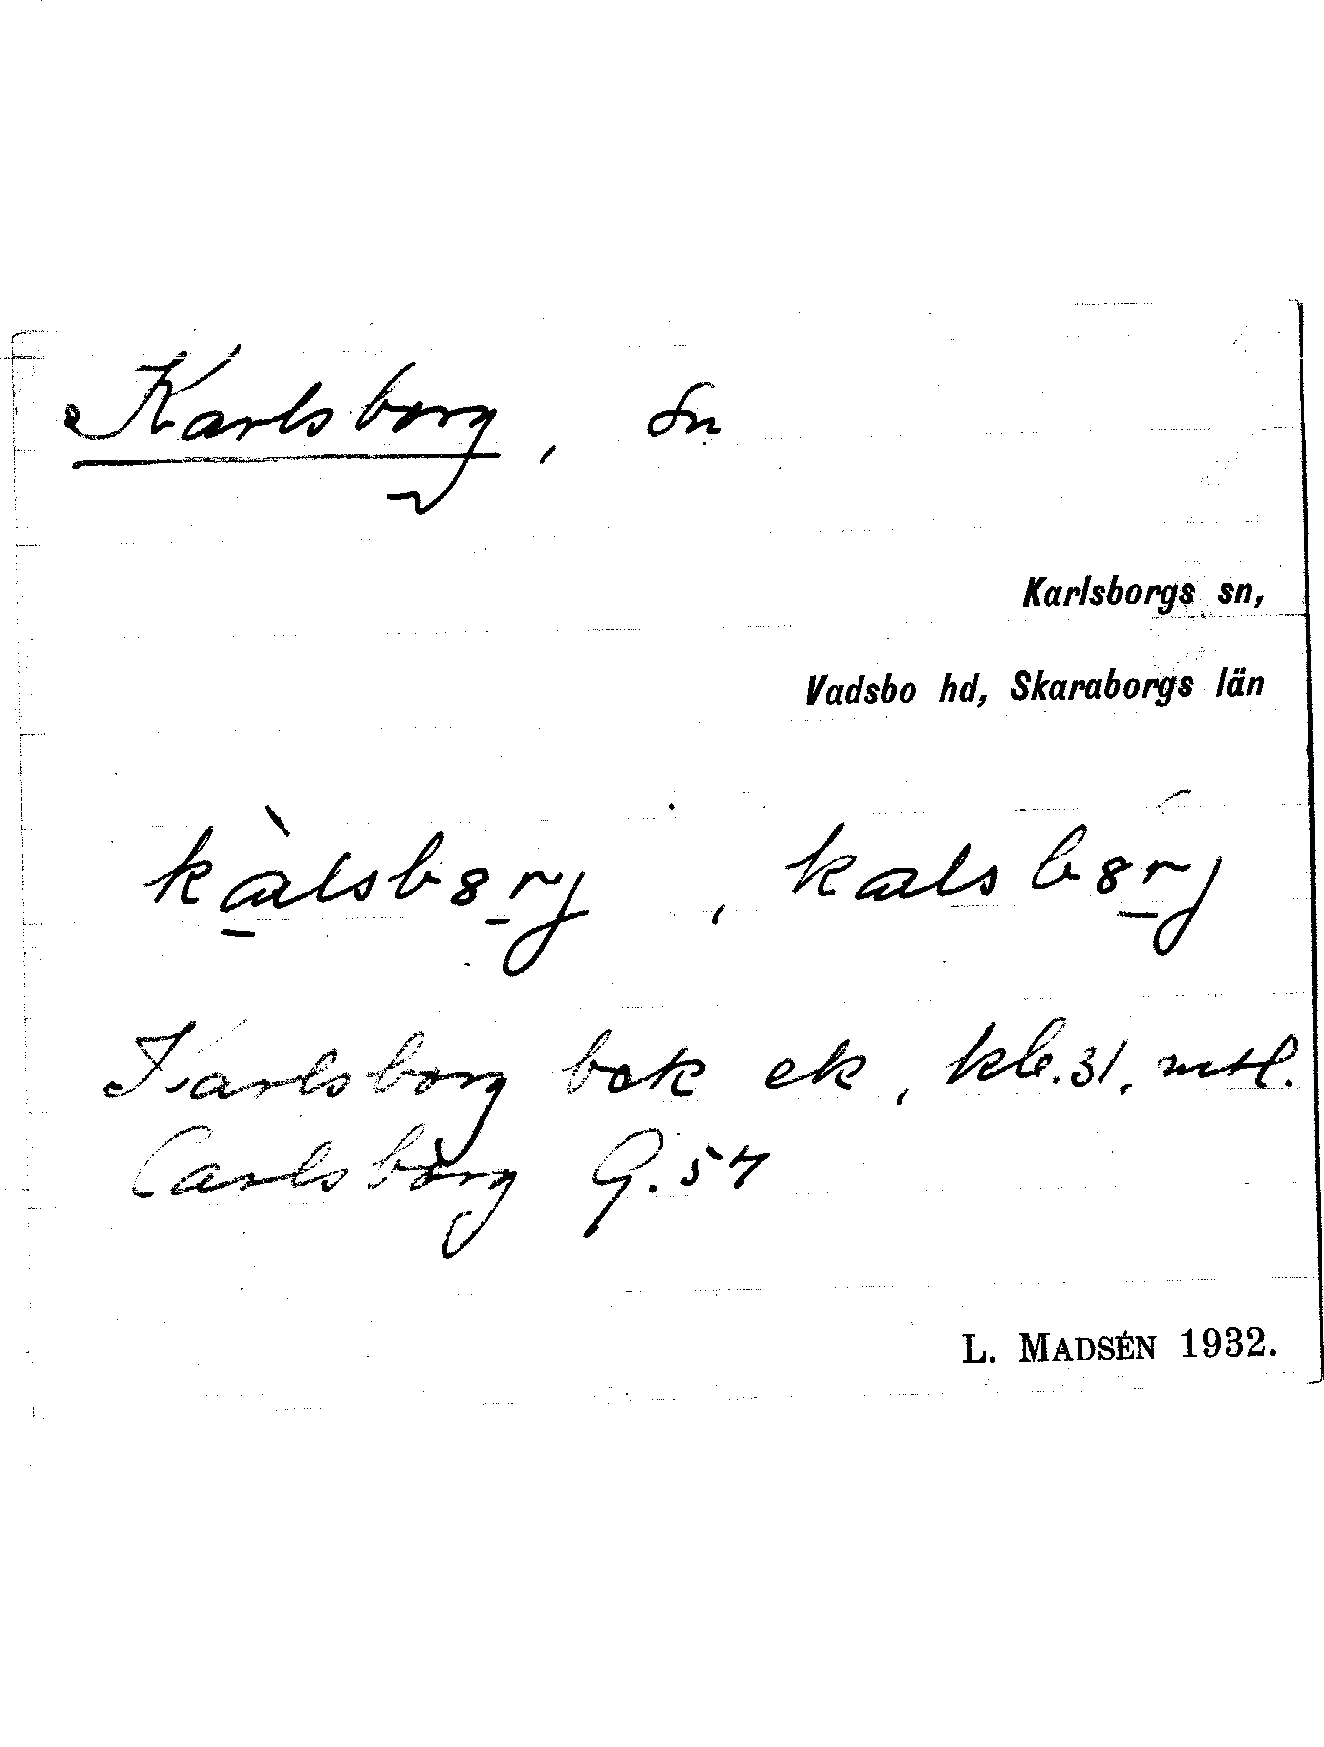 Karlsborg, sn
Karlsborgs sn,
Vadsbo hd, Skaraborgs län
kàlsb8rj, kalsb8rj
Karlsborg bok ek, kb. 31, mtl.
Carlsborg G. 57
L. MADSÉN 1932.